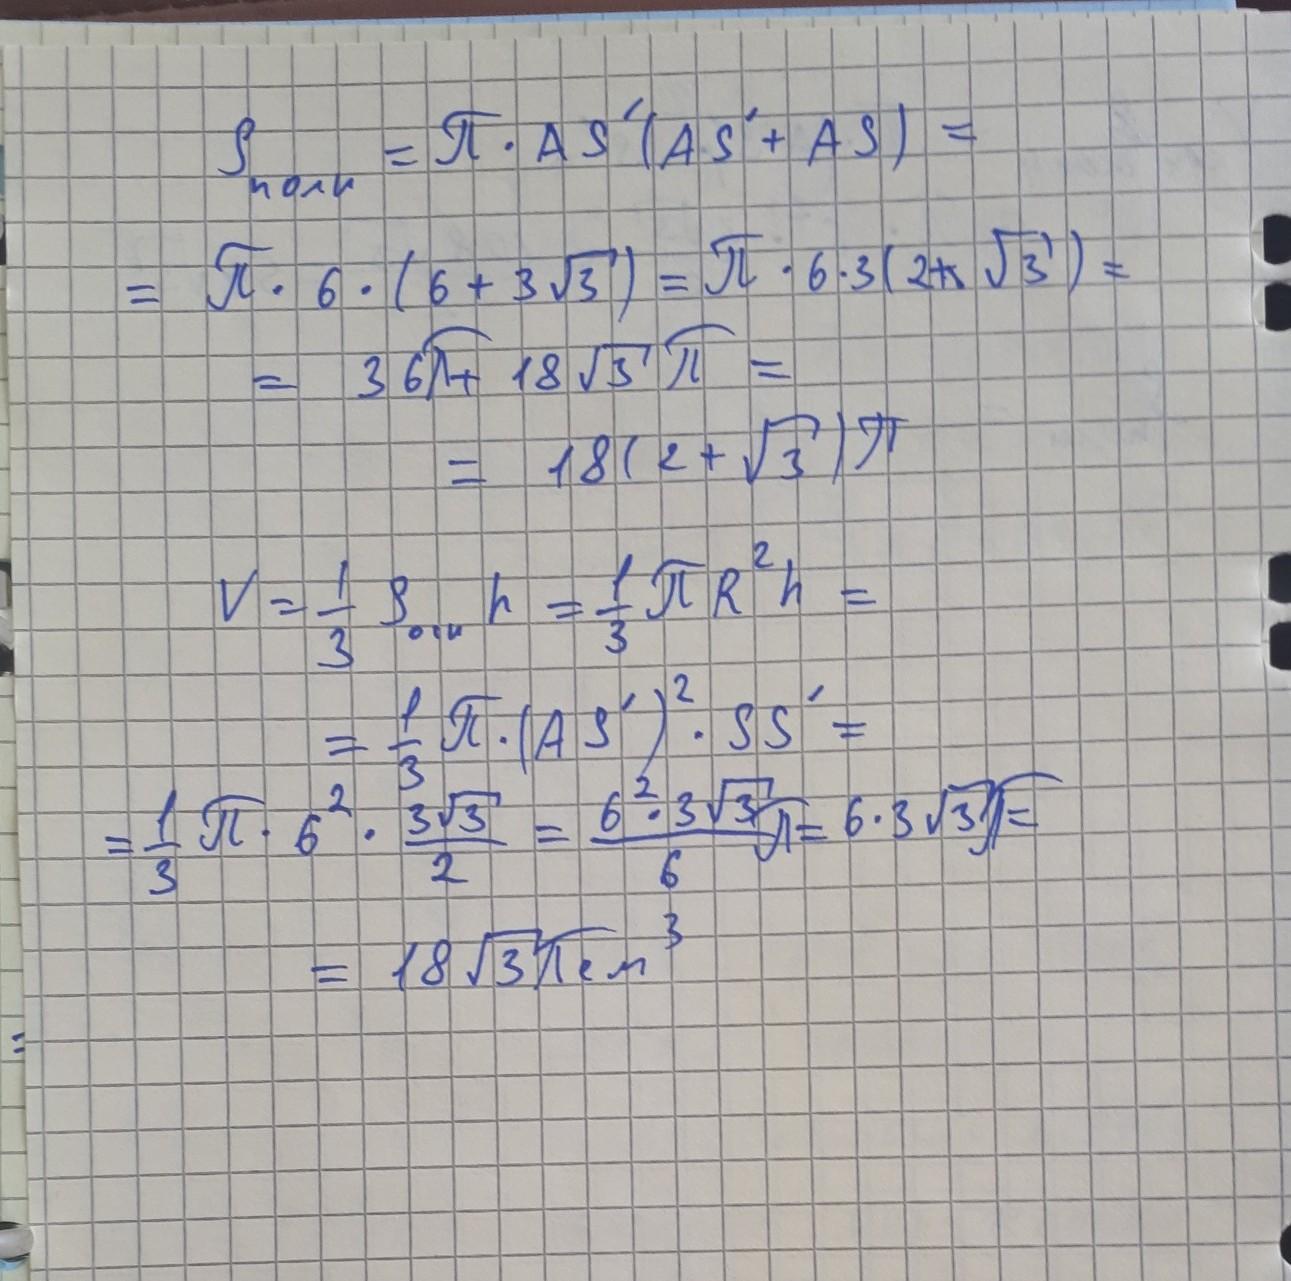 Sполн = π · AS'(AS' + AS) =
= π · 6 · (6 + 3√3) = π · 6 · 3(2 + √3) =
= 36π + 18√3 π =
= 18(2 + √3)π
V = 1/3 Sосн h = 1/3 π R² h =
= 1/3 π · (AS')² · SS' =
= 1/3 π · 6² · 3√3/2 = 6² · 3√3/6 π = 6 · 3√3 π =
= 18√3 π см³
=